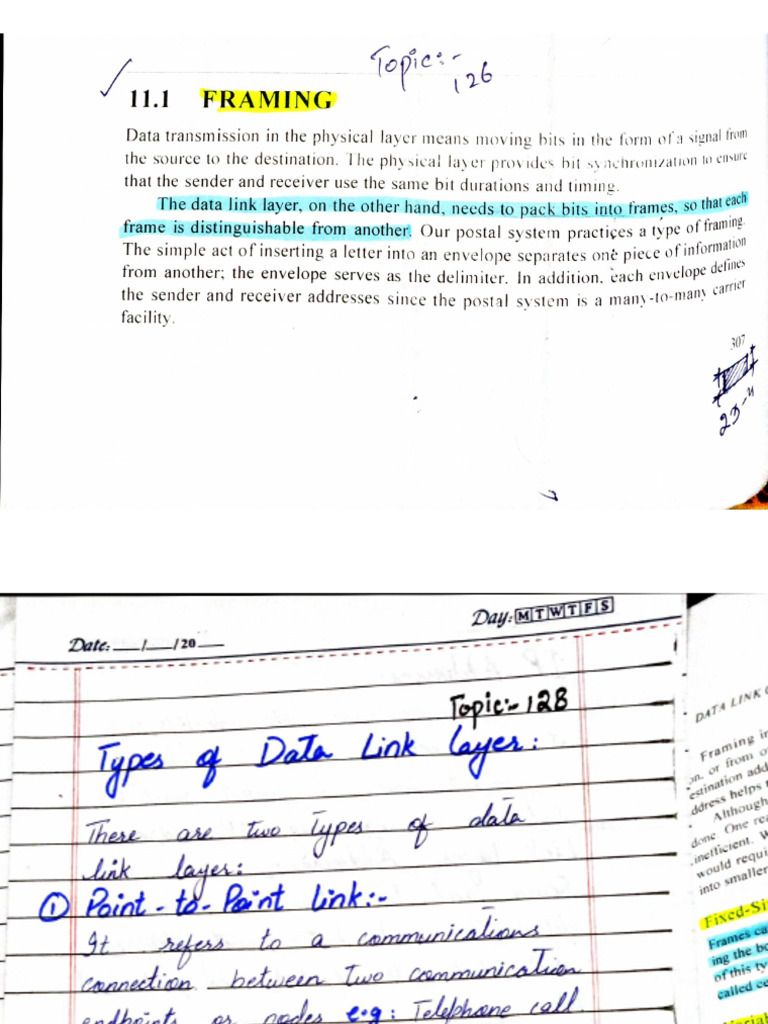 Topic:- 126
11.1 FRAMING
Data transmission in the physical layer means moving bits in the form of a signal from
the source to the destination. The physical layer provides bit synchronization to ensure
that the sender and receiver use the same bit durations and timing.
The data link layer, on the other hand, needs to pack bits into frames, so that each
frame is distinguishable from another. Our postal system practices a type of framing.
The simple act of inserting a letter into an envelope separates one piece of information
from another; the envelope serves as the delimiter. In addition, each envelope defines
the sender and receiver addresses since the postal system is a many-to-many carrier
facility.
307
Day: M T W T F S
Date: __/__/20__
Topic:- 128
Types of Data Link layer:
There are two types of data
link layer:
① Point-to-Point link:-
It refers to a communications
connection between two communication
endpoints or nodes e.g: Telephone call
DATA LINK
Framing
or from
estination
ddress helps
Although
done. One
inefficient.
would
into smaller
Fixed-Si
Frames
ing the
of this
called